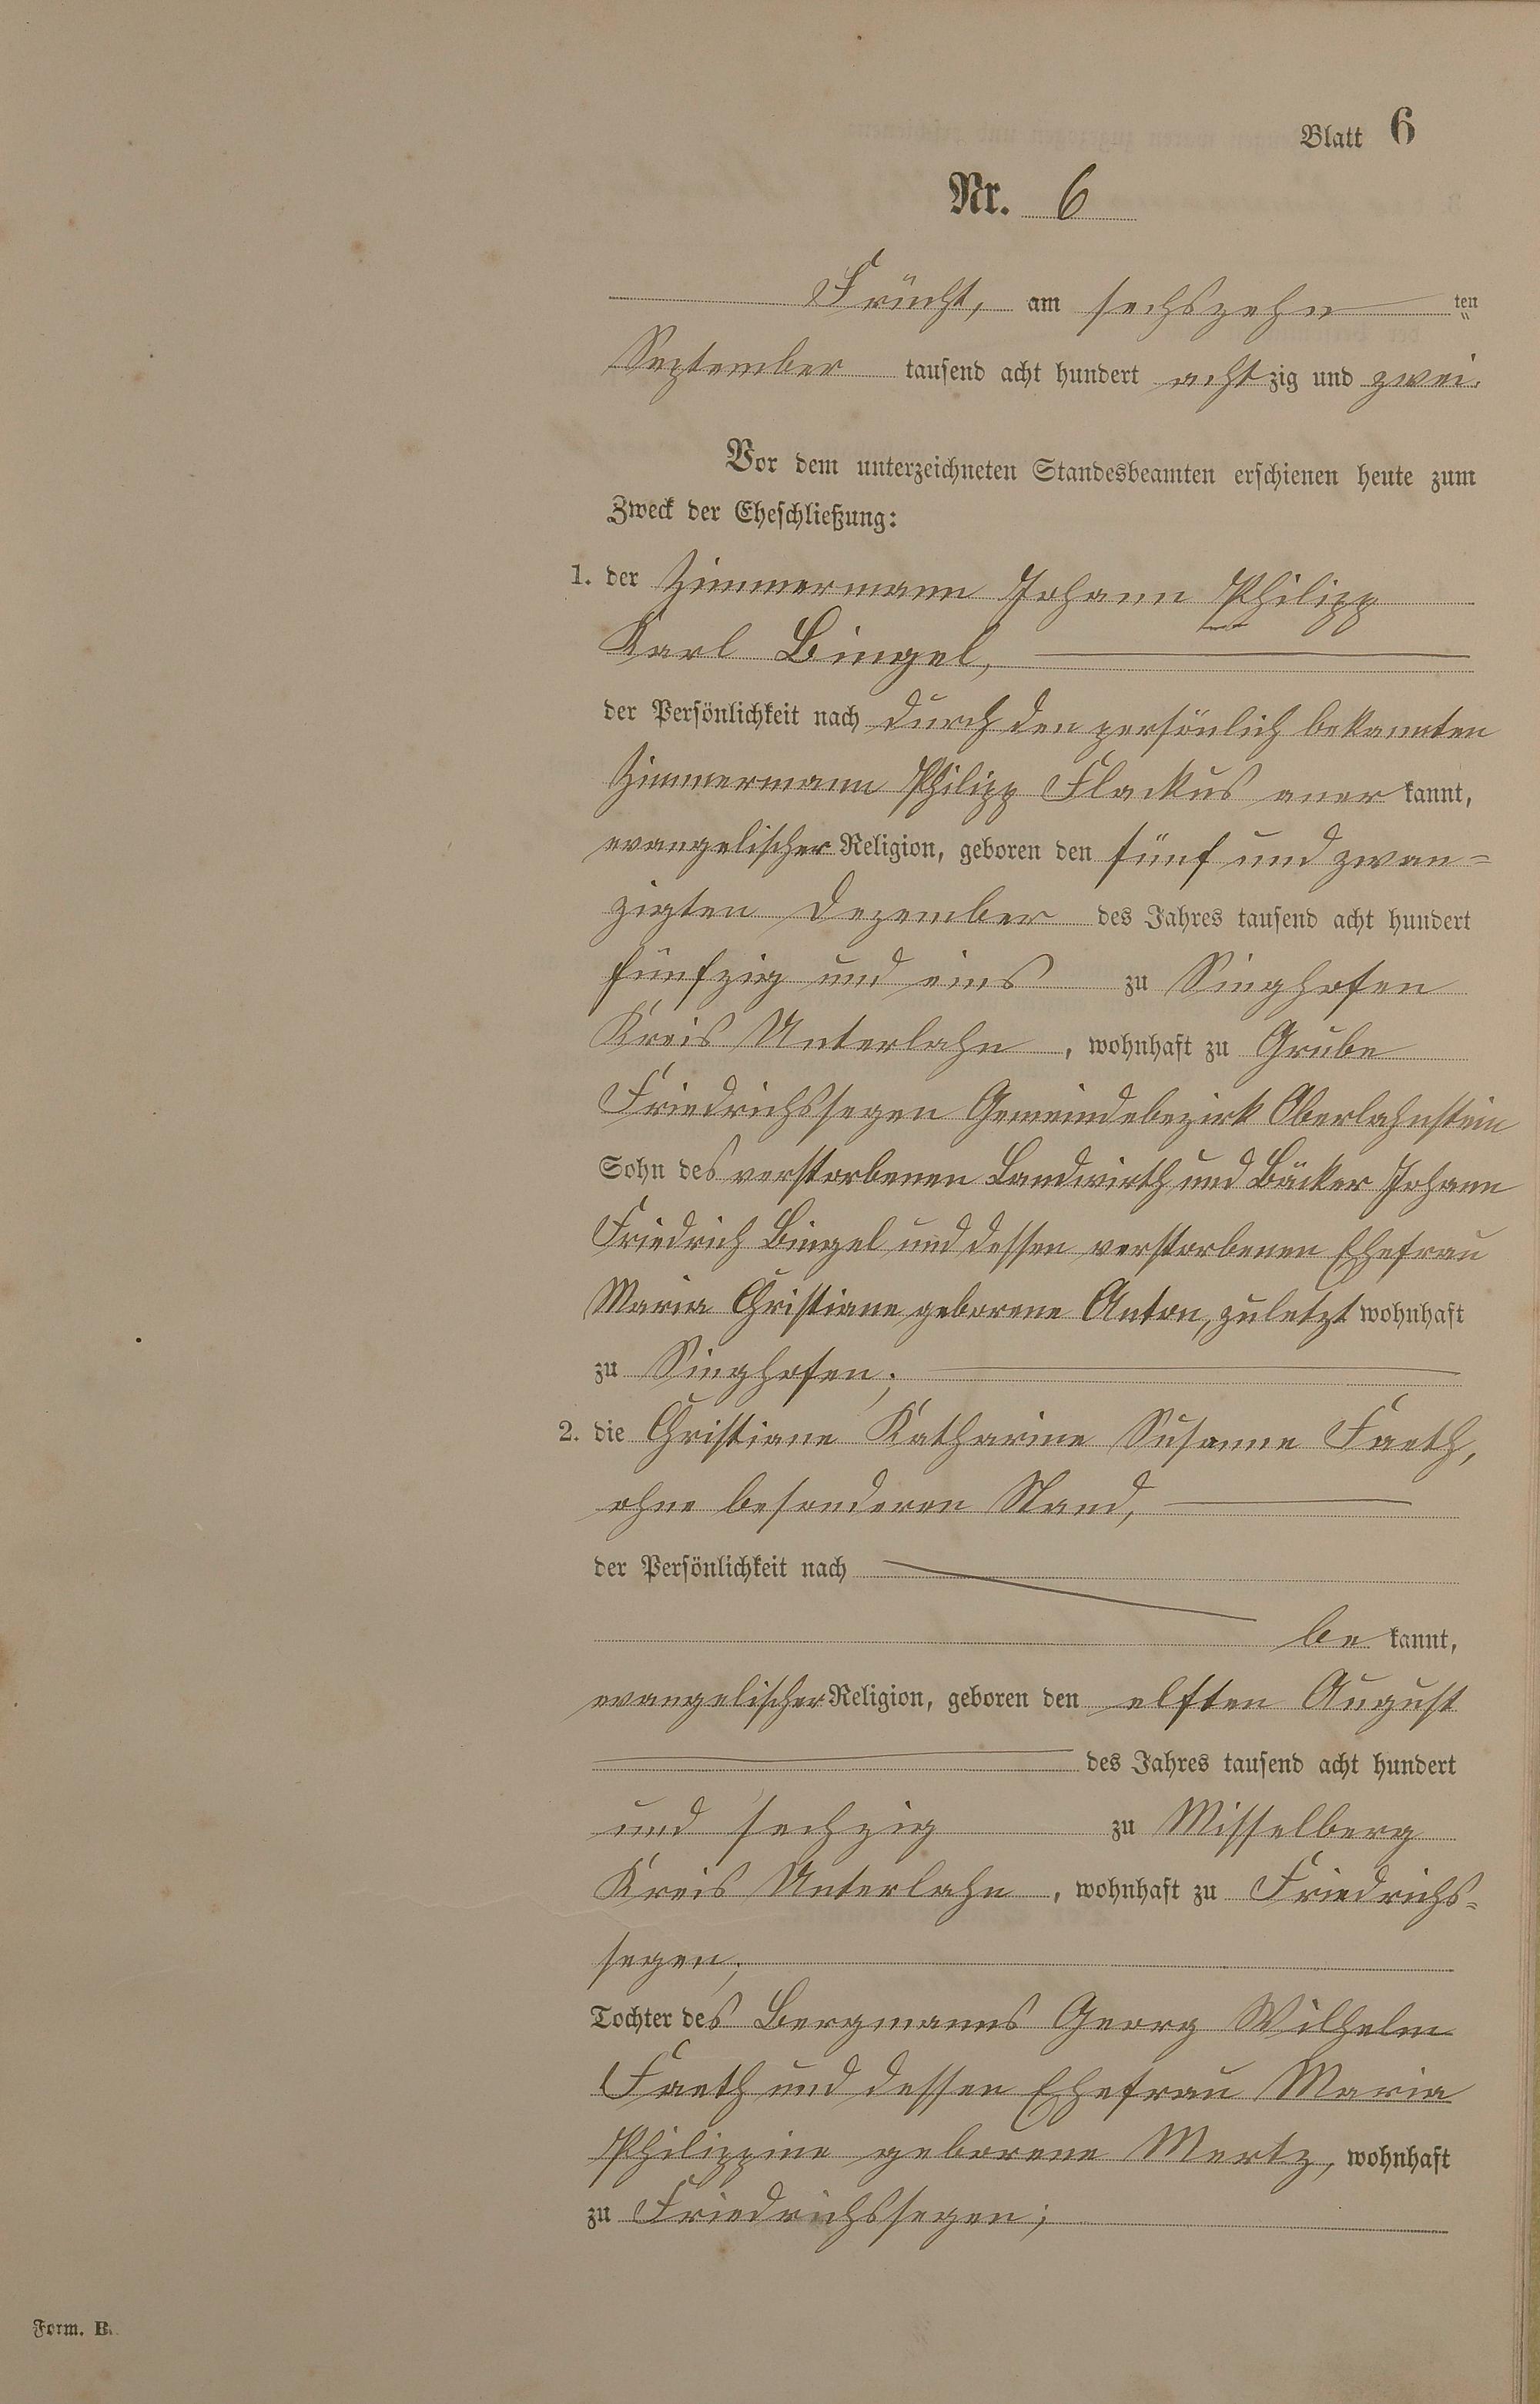 Blatt 6
Nr. 6
Frücht, am sechszehn ten
September tausend acht hundert achtzig und zwei.
Vor dem unterzeichneten Standesbeamten erschienen heute zum
Zweck der Eheschließung:
1. der Zimmermann Johann Philipp
Karl Bingel,
der Persönlichkeit nach durch den persönlich bekannten
Zimmermann Philipp Flackus aner kannt,
evangelischer Religion, geboren den fünf und zwan=
zigten Dezember des Jahres tausend acht hundert
fünfzig und eins zu Singhofen
Kreis Unterlahn, wohnhaft zu Grube
Friedrichssegen Gemeindebezirk Oberlahnstein
Sohn des verstorbenen Landwirth und Bäcker Johann
Friedrich Bingel und dessen verstorbenen Ehefrau
Maria Christiane geborene Anton, zuletzt wohnhaft
zu Singhofen;
2. die Christiane Katharine Susanne Faeth,
ohne besonderen Stand,
der Persönlichkeit nach
be kannt,
evangelischer Religion, geboren den elften August
des Jahres tausend acht hundert
und sechzig zu Misselberg
Kreis Unterlahn, wohnhaft zu Friedrichs=
segen;
Tochter des Bergmanns Georg Wilhelm
Faeth und dessen Ehefrau Maria
Philippine geborene Mertz, wohnhaft
zu Friedrichssegen;
Form. B.